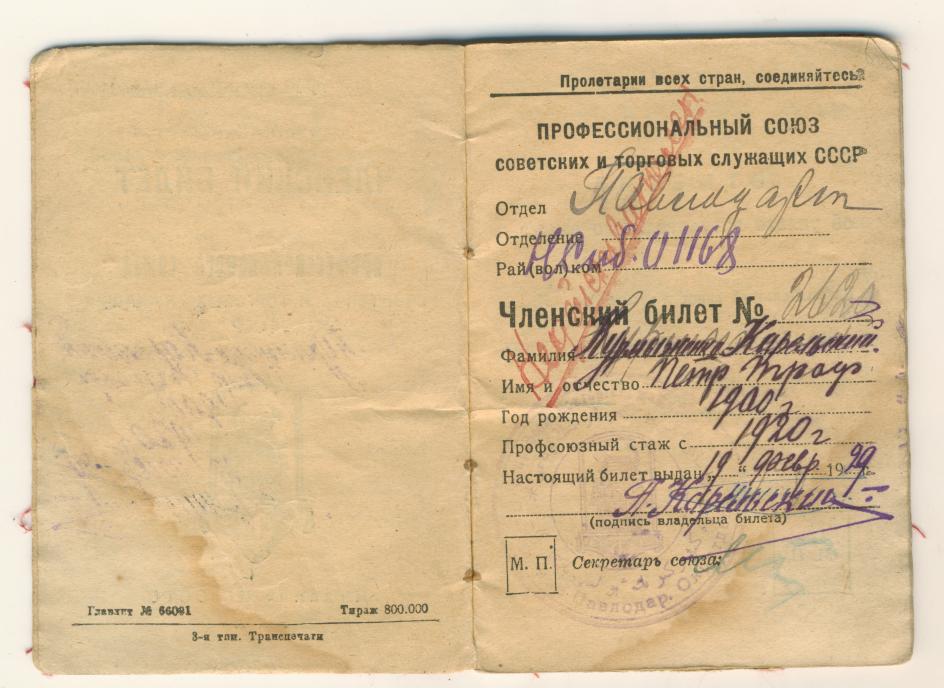 Главлит № 66091 Тираж 800.000
3-я тип. Транспечати
Пролетарии всех стран, соединяйтесь!
ПРОФЕССИОНАЛЬНЫЙ СОЮЗ
советских и торговых служащих СССР
Отдел Павлодарск
Отделение
Рай(вол)ком 01168
Членский билет № 262
Фамилия
Имя и отчество Петр
Год рождения 1900 г
Профсоюзный стаж с 1920 г
Настоящий билет выдан „19 “ февр. 1929.
(подпись владельца билета)
М. П. Секретарь союза:
Павлодар.